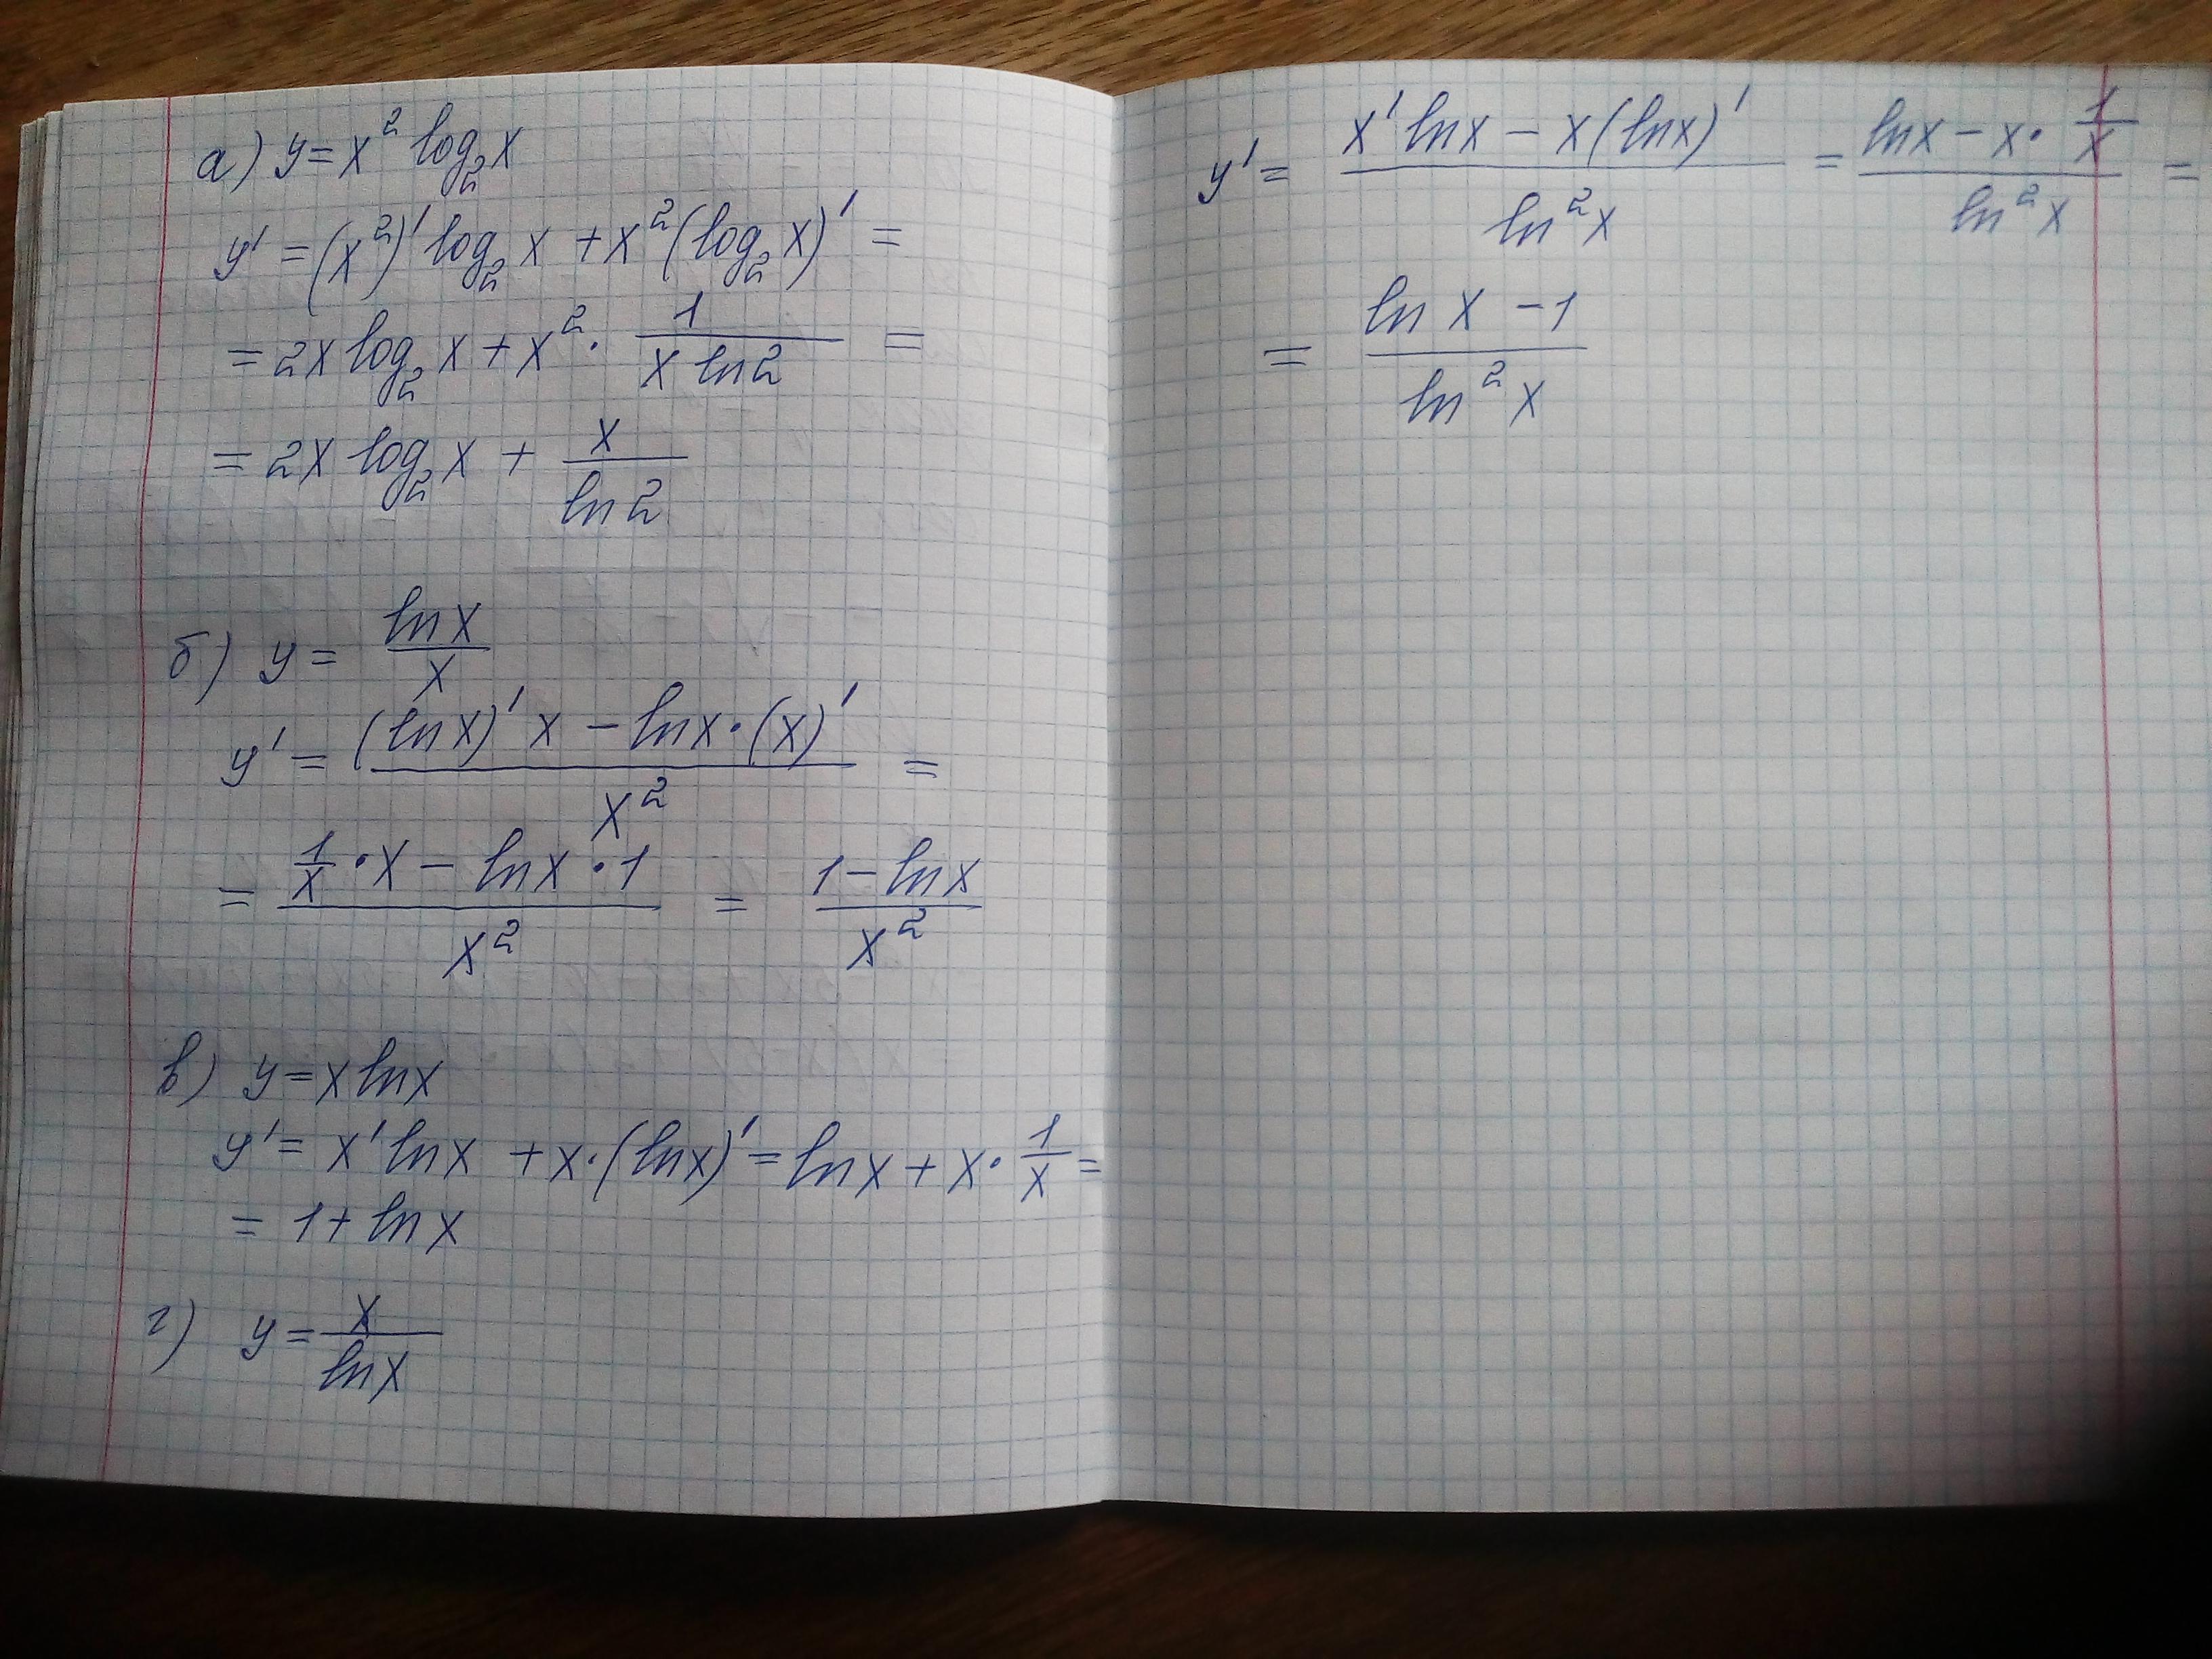 а) y = x² log₂x
y' = (x²)' log₂ x + x² (log₂ x)' =
= 2x log₂ x + x² · 1/(x ln2) =
= 2x log₂ x + x/(ln2)
б) y = (ln x)/x
y' = ((ln x)' x − ln x · (x)')/x² =
= (1/x · x − ln x · 1)/x² = (1 − ln x)/x²
в) y = x ln x
y' = x' ln x + x · (ln x)' = ln x + x · 1/x =
= 1 + ln x
г) y = x/(ln x)
y' = (x' ln x − x (ln x)')/(ln² x) = (ln x − x · 1/x)/(ln² x) =
= (ln x − 1)/(ln² x)